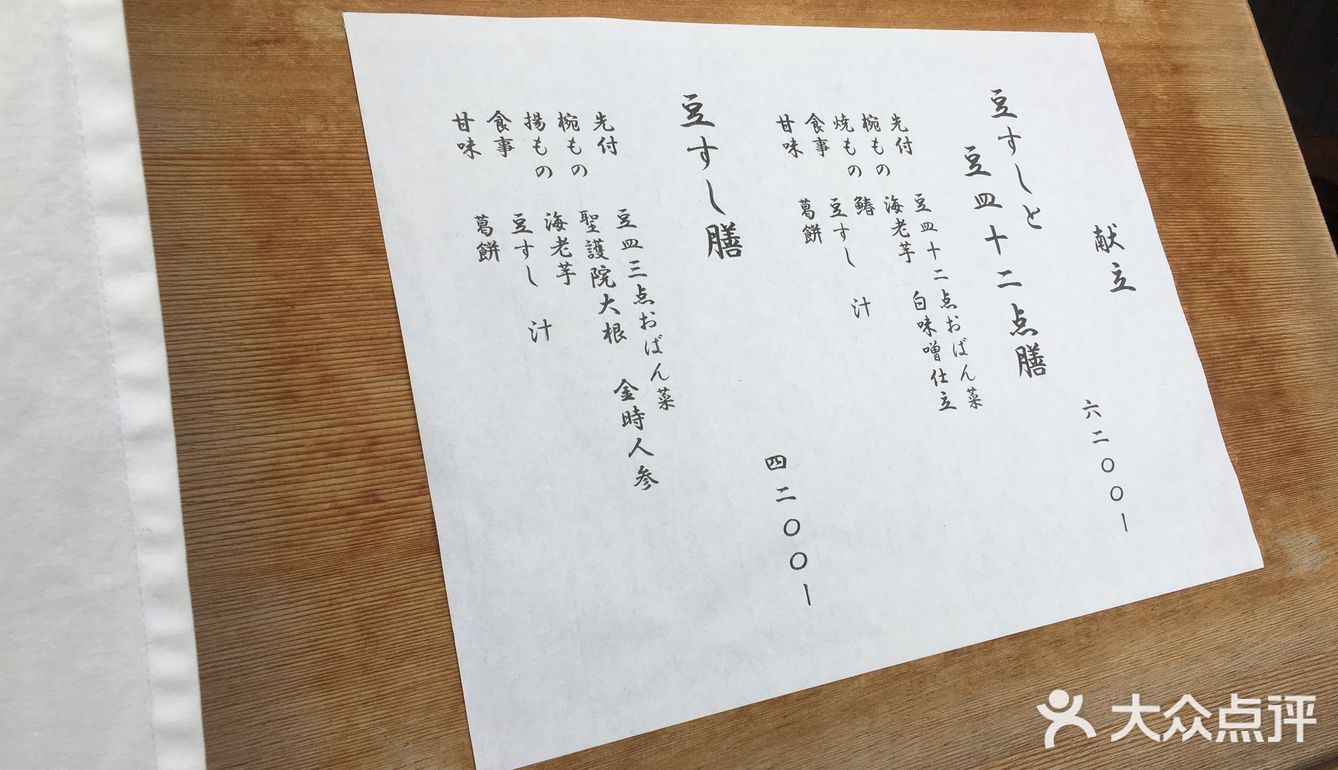 献立
豆すしと
豆皿十二点膳
六二〇〇ー
先付 豆皿十二点おばん菜
椀もの 海老芋 白味噌仕立
焼もの 鰆
食事 豆すし 汁
甘味 葛餅
豆すし膳
四二〇〇ー
先付 豆皿三点おばん菜
椀もの 聖護院大根 金時人参
揚もの 海老芋
食事 豆すし 汁
甘味 葛餅
大众点评